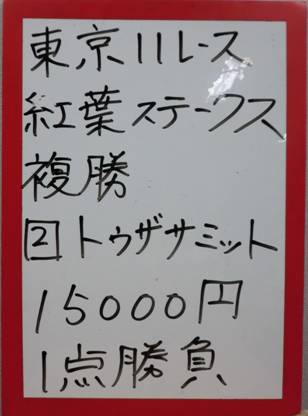 東京11レース
紅葉ステークス
複勝
2 トゥザサミット
15000円
1点勝負